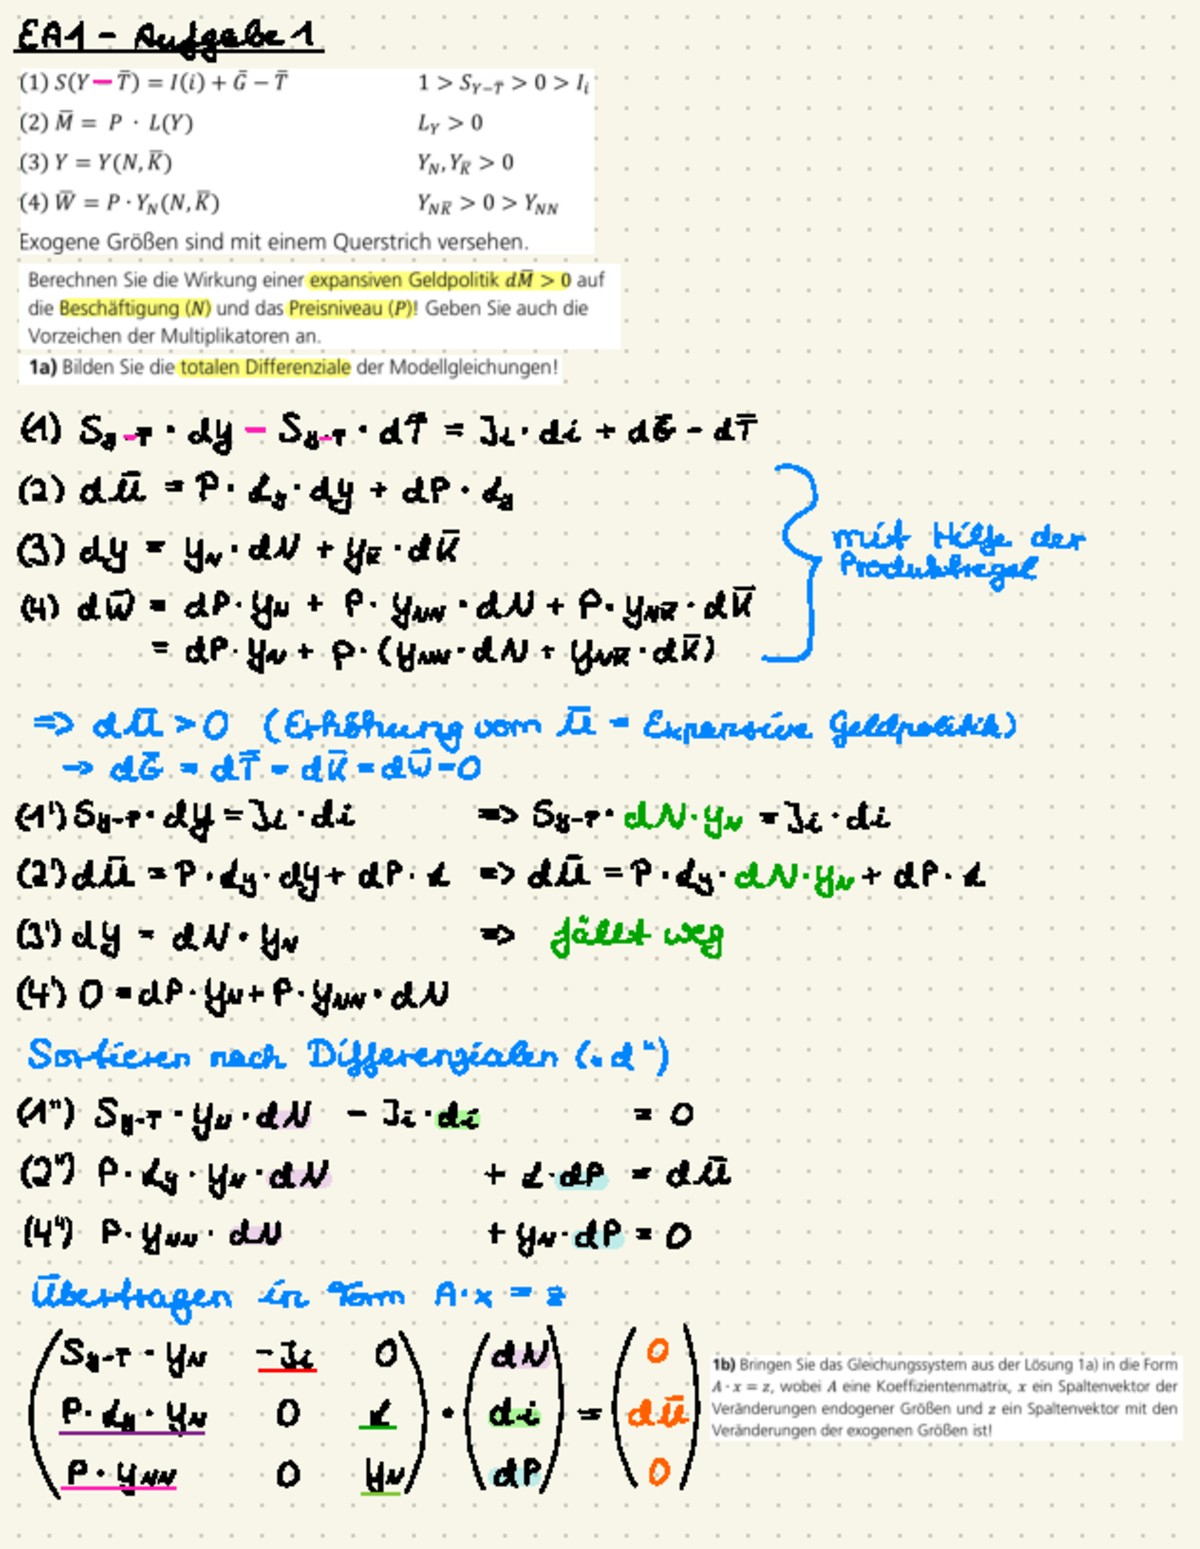 EA1 - Aufgabe 1
(1) S(Y − T̄) = I(i) + Ḡ − T̄ 1 > S_{Y−T̄} > 0 > I_i
(2) M̄ = P · L(Y) L_Y > 0
(3) Y = Y(N, K̄) Y_N, Y_K̄ > 0
(4) W̄ = P · Y_N(N, K̄) Y_{NK̄} > 0 > Y_{NN}
Exogene Größen sind mit einem Querstrich versehen.
Berechnen Sie die Wirkung einer expansiven Geldpolitik dM̄ > 0 auf
die Beschäftigung (N) und das Preisniveau (P)! Geben Sie auch die
Vorzeichen der Multiplikatoren an.
1a) Bilden Sie die totalen Differenziale der Modellgleichungen!
(1) S_{y-T} · dy − S_{y-T} · dT̄ = I_i · di + dḠ − dT̄
(2) dM̄ = P · L_y · dy + dP · L_y
(3) dy = y_N · dN + y_K̄ · dK̄
mit Hilfe der
Produktregel
(4) dW̄ = dP · y_N + P · y_{NN} · dN + P · y_{NK̄} · dK̄
= dP · y_N + P · (y_{NN} · dN + y_{NK̄} · dK̄)
=> dM̄ > 0 (Erhöhung vom M̄ = Expansive Geldpolitik)
→ dḠ = dT̄ = dK̄ = dW̄ = 0
(1') S_{y-T} · dy = I_i · di => S_{y-T} · dN · y_N = I_i · di
(2') dM̄ = P · L_y · dy + dP · L => dM̄ = P · L_y · dN · y_N + dP · L
(3') dy = dN · y_N => fällt weg
(4') 0 = dP · y_N + P · y_{NN} · dN
Sortieren nach Differenzialen („d“)
(1'') S_{y-T} · y_N · dN − I_i · di = 0
(2'') P · L_y · y_N · dN + L · dP = dM̄
(4'') P · y_{NN} · dN + y_N · dP = 0
Übertragen in Form A · x = z
S_{y-T} · y_N −I_i 0 dN 0
P · L_y · y_N 0 L · di = dM̄
P · y_{NN} 0 y_N dP 0
1b) Bringen Sie das Gleichungssystem aus der Lösung 1a) in die Form
A · x = z, wobei A eine Koeffizientenmatrix, x ein Spaltenvektor der
Veränderungen endogener Größen und z ein Spaltenvektor mit den
Veränderungen der exogenen Größen ist!